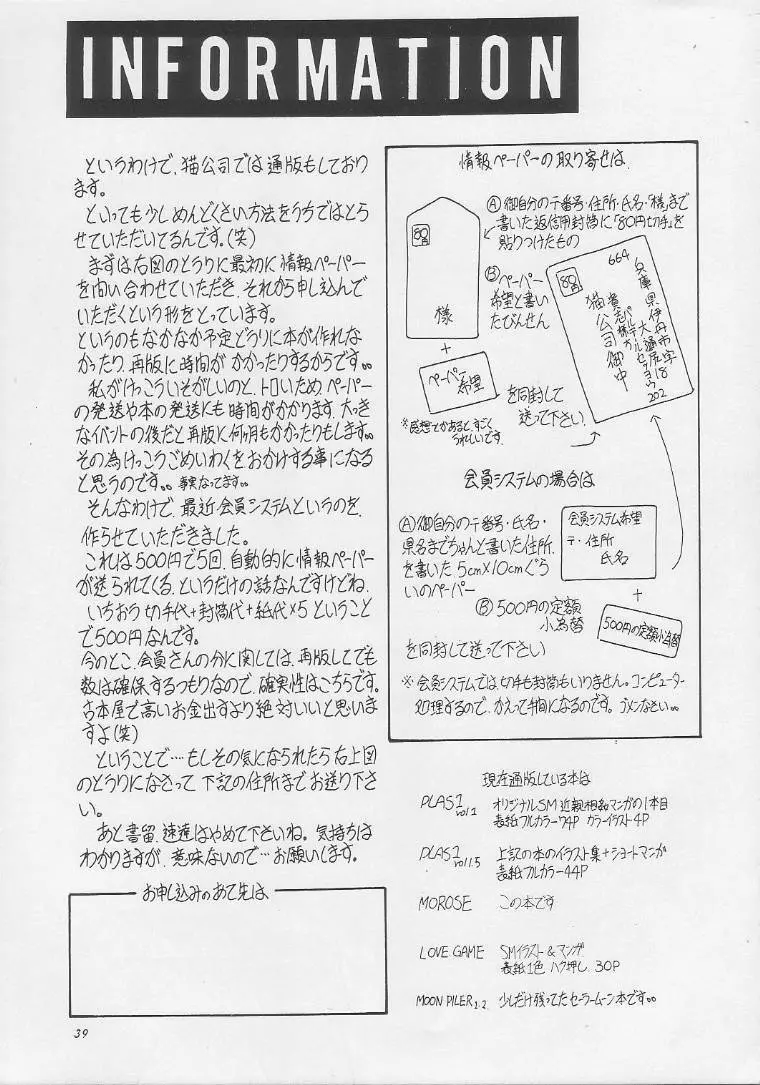 INFORMATION
というわけで、猫公司では通販もしており
ます。
といっても少しめんどくさい方法をうちではとら
せていただいてるんです。(笑)
まずは右図のとうりに最初に情報ペーパー
を問い合わせていただき、それから申し込んで
いただくという形をとっています。
というのもなかなか予定どうりに本が作れな
かったり、再版に時間がかかったりするからです。。
私がけっこういそがしいのと、トロいため、ペーパー
の発送や本の発送にも時間がかかります。大っき
なイベントの後だと再版に何ヶ月もかかったりもします。。
その為けっこうごめいわくをおかけする事になる
と思うのです。。事実なってます。。
そんなわけで、最近会員システムというのを、
作らせていただきました。
これは500円で5回、自動的に情報ペーパー
が送られてくる、というだけの話なんですけどね、
いちおう切手代+封筒代+紙代×5ということ
で500円なんです。
今のとこ、会員さんの分に関しては、再版してでも
数は確保するつもりなので、確実性はこちらです。
古本屋で高いお金出すより絶対いいと思いま
すよ(笑)
ということで…もしその気になられたら右上図
のとうりになさって下記の住所までお送り下さ
い。
あと書留、速達はやめて下さいね。気持ちは
わかりますが、意味ないので…お願いします。
お申し込みのあて先は
39
情報ペーパーの取り寄せは、
Ⓐ御自分の〒番号・住所・氏名・「様」まで
書いた返信用封筒に「80円切手」を
貼りつけたもの
80
様
+
ペーパー
希望
Ⓑペーパー
希望と書い
たびんせん
を同封して
送って下さい
※感想とかあると、すごく
うれしいです
80
664
兵庫県伊丹市
大鹿字
18
202
猫公司御中
会員システムの場合は
Ⓐ御自分の〒番号・氏名・
県名までちゃんと書いた住所、
を書いた5cm×10cmぐら
いのペーパー
会員システム希望
〒・住所
氏名
+
Ⓑ500円の定額
小為替
500円の定額小為替
を同封して送って下さい
※会員システムでは、切手も封筒もいりません。コンピューター
処理するので、かえって手間になるのです。ゴメンなさい。。
現在通版している本は
PLAS1 vol.1 オリジナルSM近親相姦マンガの1本目
表紙フルカラー74P カラーイラスト4P
PLAS1 vol1.5 上記の本のイラスト集+ショートマンガ
表紙フルカラー44P
MOROSE この本です
LOVE GAME SMイラスト&マンガ
表紙1色 ハク押し 30P
MOON PILER 1.2 少しだけ残ってたセーラームーン本です。。